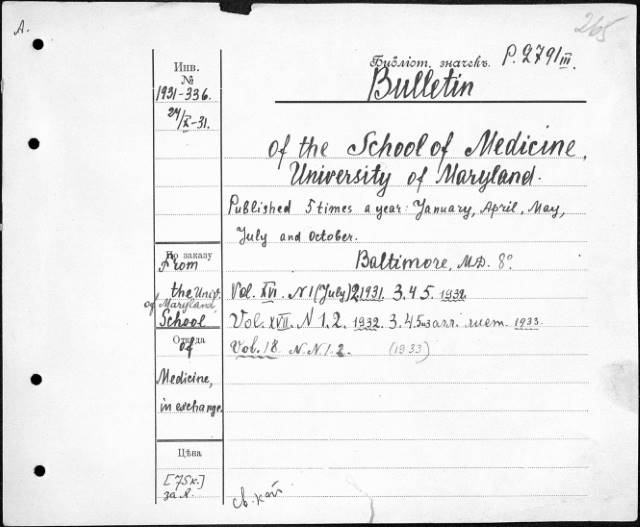 A.
265
Библіот. значекъ. P.2791 III.
Инв.
№
1931-336.
24/X-31.
Bulletin
of the School of Medicine,
University of Maryland.
Published 5 times a year: January, April, May,
July and October.
Baltimore, M.D. 8°
По заказу
From
the Univ.
of Maryland,
School
Откуда
of
Medicine,
in exchange.
Vol. XVI. N 1 (July) 2.1931. 3. 4 5. 1932.
Vol. XVII. N 1. 2. 1932. 3. 4. 5. загл. лист. 1933.
Vol. 18 N.N. 1. 2. (1933)
Цѣна
[75 к.]
за N.
св. кат